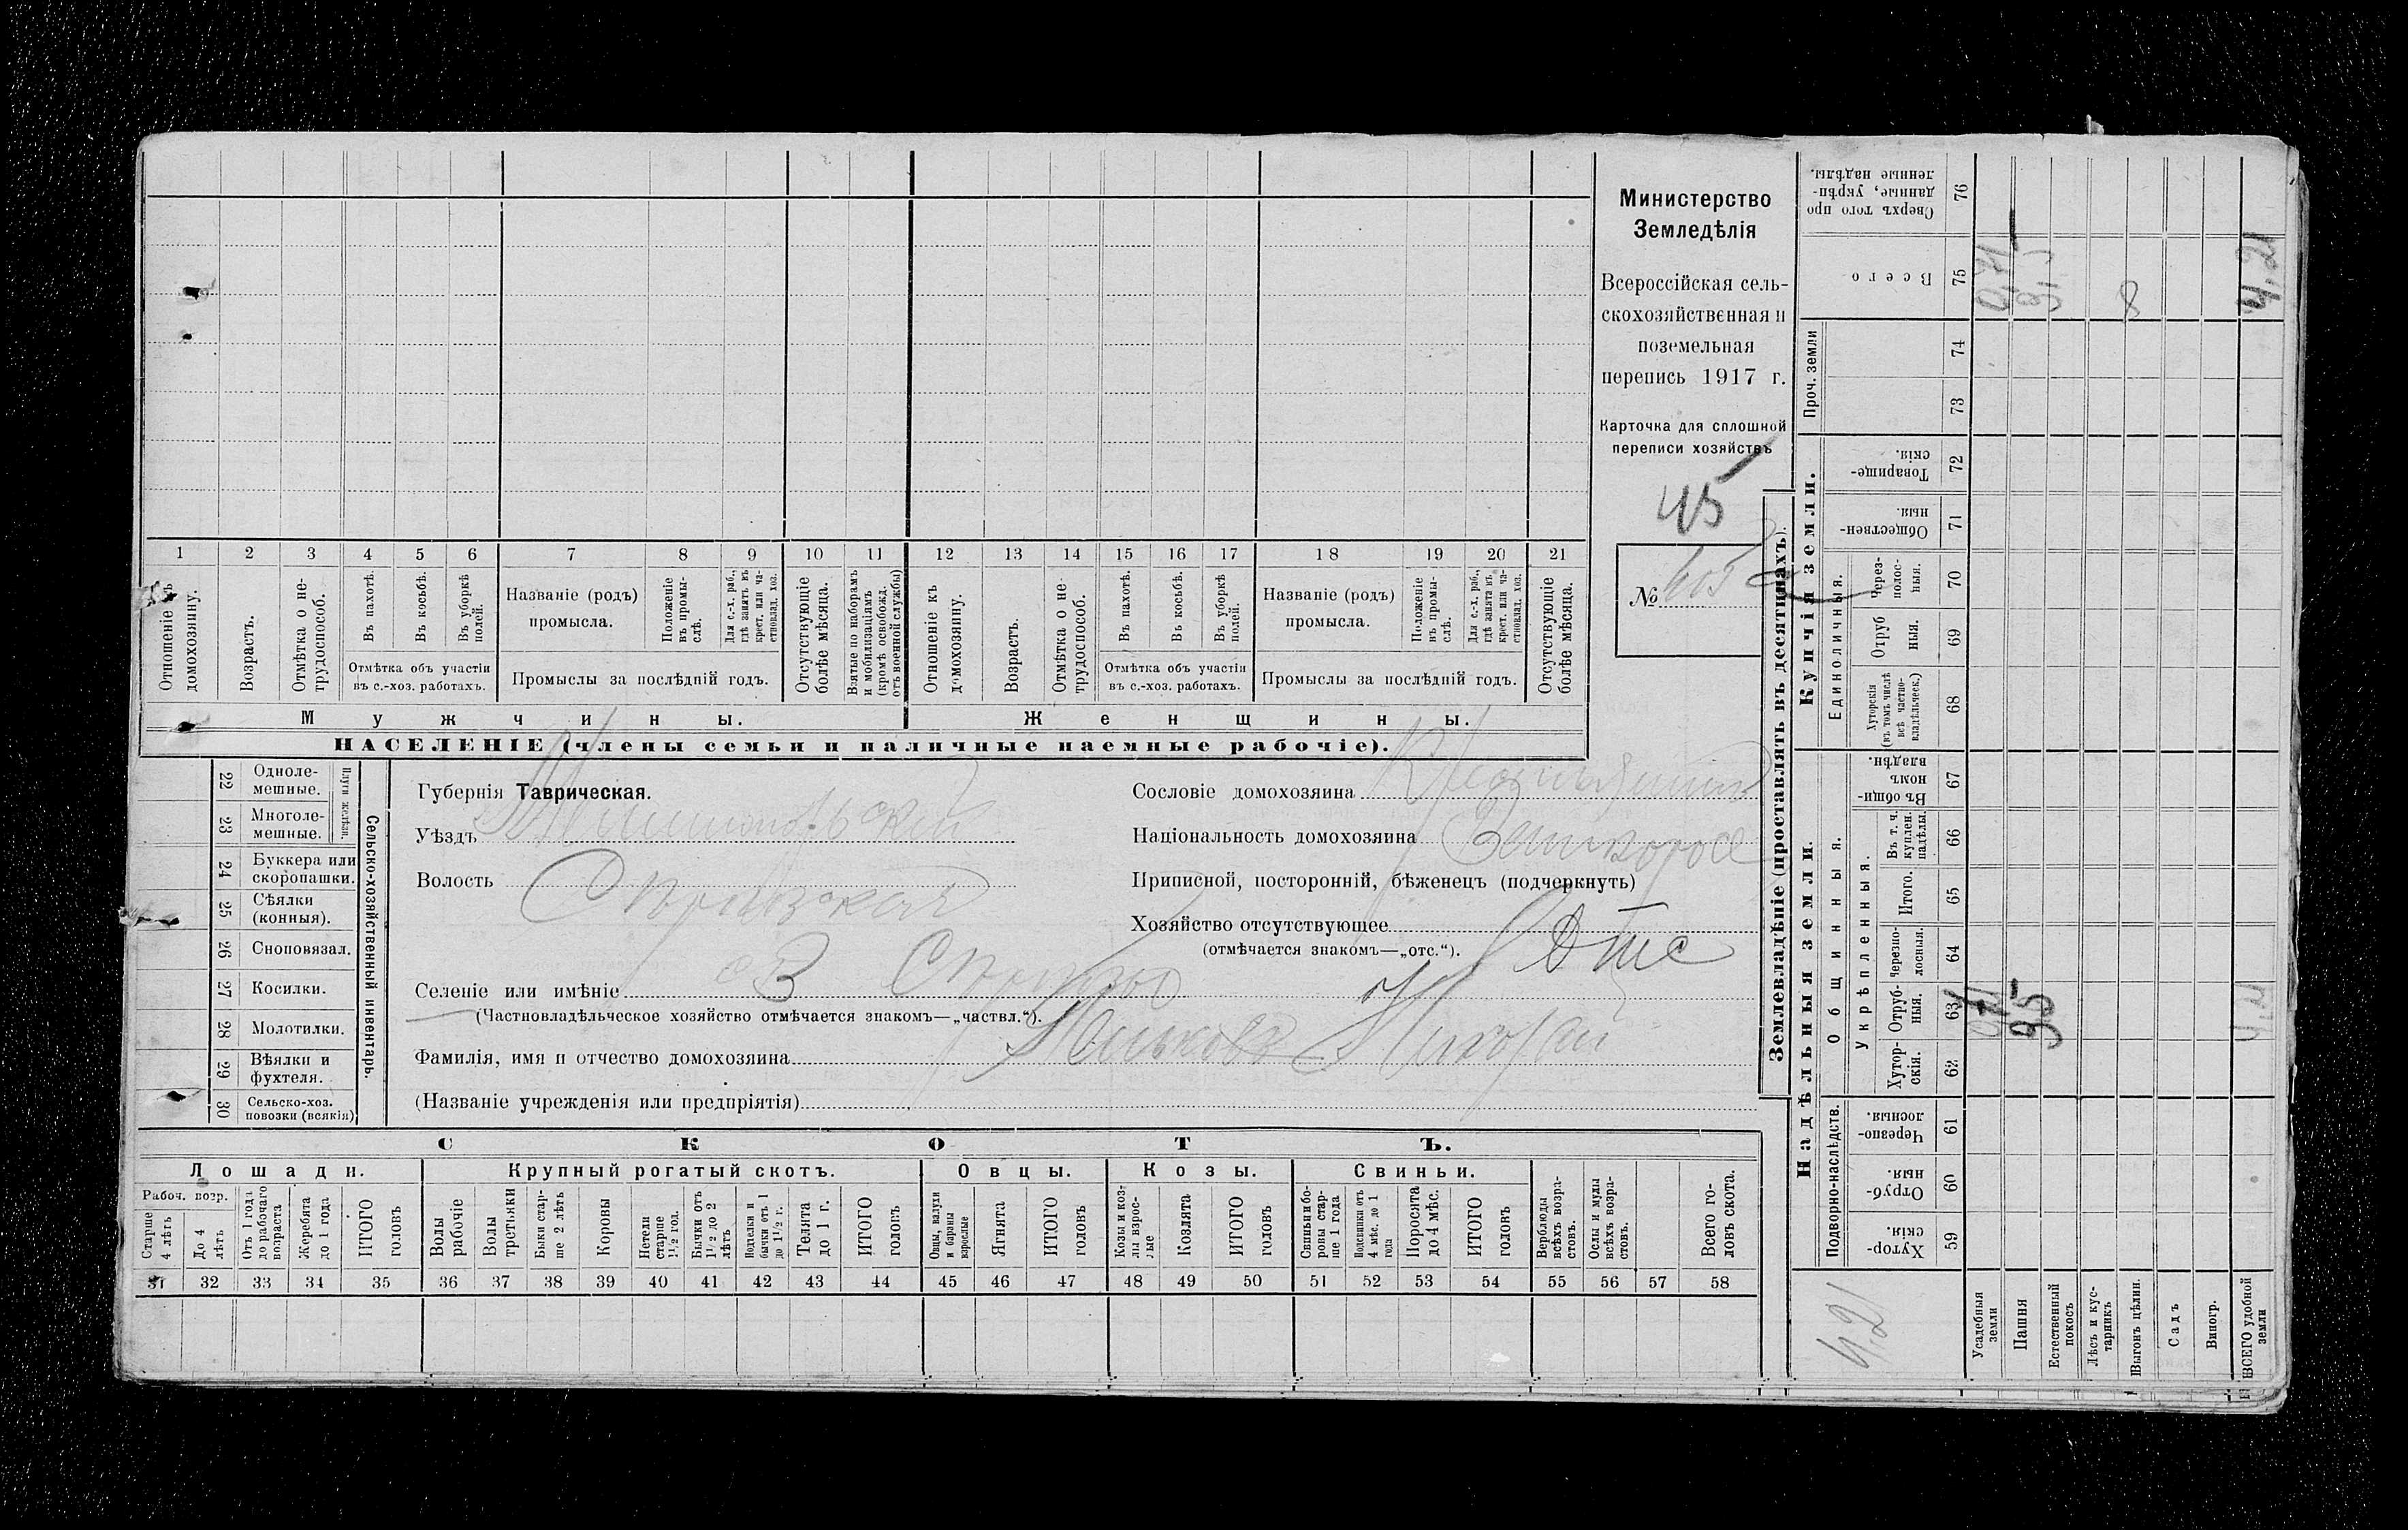 Министерство
Земледѣлія
Всероссійская сель-
скохозяйственная и
поземельная
перепись 1917 г.
Карточка для сплошной
переписи хозяйствъ
45
№ 405
1 2 3 4 5 6 7 8 9 10 11 12 13 14 15 16 17 18 19 20 21
Отношеніе къ домохозяину.
Возрастъ.
Отмѣтка о не-трудоспособ.
Въ пахотѣ.
Въ косьбѣ.
Въ уборкѣ полей.
Отмѣтка объ участіи
въ с.-хоз. работахъ.
Названіе (родъ)
промысла.
Положеніе въ промы-слѣ.
Для с.-х. раб., гдѣ занятъ въ крест. или ча-стновлад. хоз.
Промыслы за послѣдній годъ.
Отсутствующіе болѣе мѣсяца.
Взятые по наборамъ и мобилизаціямъ (кромѣ освобожд. отъ военной службы)
Отношеніе къ домохозяину.
Возрастъ.
Отмѣтка о не-трудоспособ.
Въ пахотѣ.
Въ косьбѣ.
Въ уборкѣ полей.
Отмѣтка объ участіи
въ с.-хоз. работахъ.
Названіе (родъ)
промысла.
Положеніе въ промы-слѣ.
Для с.-х. раб., гдѣ занята въ крест. или ча-стновлад. хоз.
Промыслы за послѣдній годъ.
Отсутствующіе болѣе мѣсяца.
Мужчины.
Женщины.
НАСЕЛЕНІЕ (члены семьи и наличные наемные рабочіе).
22 Одноле-мешные.
23 Многоле-мешные.
Плуги желѣзн.
24 Буккера или скоропашки.
25 Сѣялки (конныя).
26 Сноповязал.
27 Косилки.
28 Молотилки.
29 Вѣялки и фухтеля.
30 Сельско-хоз. повозки (всякія)
Сельско-хозяйственный инвентарь.
Губернія Таврическая.
Уѣздъ
Волость
Селеніе или имѣніе
(Частновладѣльческое хозяйство отмѣчается знакомъ—„частвл.“).
Фамилія, имя и отчество домохозяина Николай
(Названіе учрежденія или предпріятія)
Сословіе домохозяина
Національность домохозяина
Приписной, посторонній, бѣженецъ (подчеркнуть)
Хозяйство отсутствующее Отс
(отмѣчается знакомъ—„отс.“).
СКОТЪ.
Лошади.
Рабоч. возр.
Старше 4 лѣтъ
До 4 лѣтъ
Отъ 1 года до рабочаго возраста
Жеребята до 1 года
ИТОГО головъ
Крупный рогатый скотъ.
Волы рабочіе
Волы третьяки
Быки стар-ше 2 лѣтъ
Коровы
Нетели старше 1½ год.
Бычки отъ 1½ до 2 лѣтъ
Подтелки и бычки отъ 1 до 1½ г.
Телята до 1 г.
ИТОГО головъ
Овцы.
Овцы, валухи и бараны взрослые
Ягнята
ИТОГО головъ
Козы.
Козы и коз-лы взрос-лые
Козлята
ИТОГО головъ
Свиньи.
Свиньи и бо-ровы стар-ше 1 года
Подсвинки отъ 4 мѣс. до 1 года
Поросята до 4 мѣс.
ИТОГО головъ
Верблюды всѣхъ возра-стовъ.
Ослы и мулы всѣхъ возра-стовъ.
Всего го-ловъ скота.
31 32 33 34 35 36 37 38 39 40 41 42 43 44 45 46 47 48 49 50 51 52 53 54 55 56 57 58
Землевладѣніе (проставлять въ десятинахъ).
Надѣльныя земли.
Подворно-наслѣдств.
Хутор-скія. 59
Отруб-ныя. 60
Черезпо-лосныя. 61
Общинныя.
Укрѣпленныя.
Хутор-скія. 62
Отруб-ныя. 63
Черезпо-лосныя. 64
Итого. 65
Въ т. ч. куплен. надѣлы. 66
Въ общи-номъ владѣн. 67
Купчія земли.
Единоличныя.
Хуторскія (въ томъ числѣ всѣ частно-владѣльческ.) 68
Отруб ныя. 69
Через-полос-ныя. 70
Обществен-ныя. 71
Товарище-скія. 72
Проч. земли
73 74
Всего 75
Сверхъ того про данные, укрѣп-ленные надѣлы. 76
Усадебныя земли
Пашня
Естественный покосъ
Лѣсъ и кус-тарникъ
Выгонъ цѣлин.
Садъ
Виногр.
ВСЕГО удобной земли
4,21
4,21